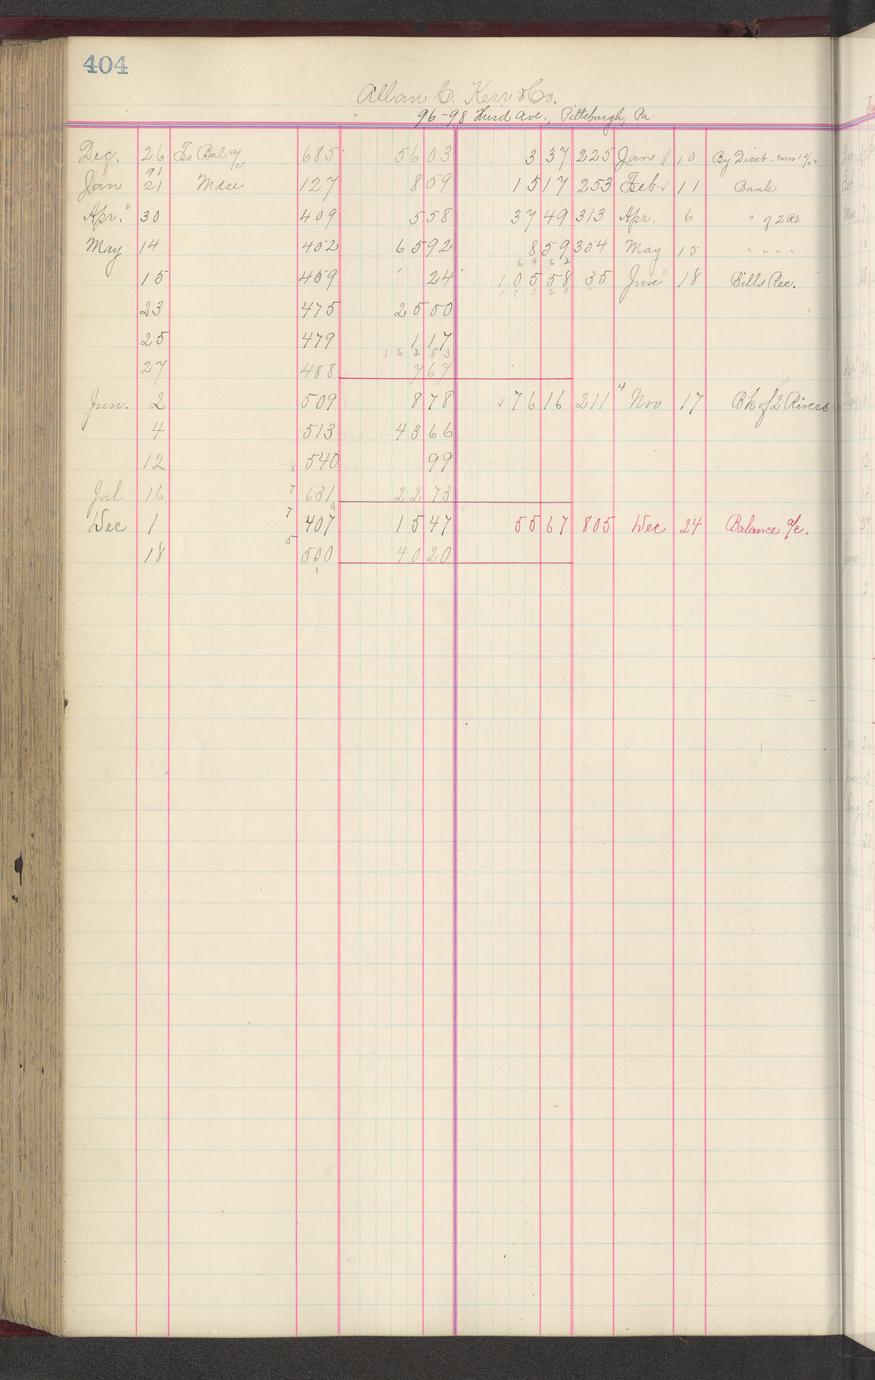 404
Allan C. Kerr & Co.
96-98 Third Ave., Pittsburgh, Pa.
Dec. 26 To Bal a/c 685 56 03 3 37 225 Jan 10 By Disct.
91
Jan 21 Mdse 127 8 59 15 17 253 Feb 11 Bank
Apr. 30 409 5 58 37 49 313 Apr. 6 " of 2 Rs
May 14 452 65 92 8 59 354 May 15 " " " "
15 459 24 105 58 35 June 18 Bills Rec.
23 475 25 00
25 479 1 17
162 53
27 488 7 67
Jun. 2 509 8 78 √76 16 211 Nov 17 Bk of 2 Rivers
4 513 43 66
12 540 99
Jul 16 631 22 73
Dec 1 407 15 47 55 67 805 Dec 24 Balance a/c.
18 500 40 20